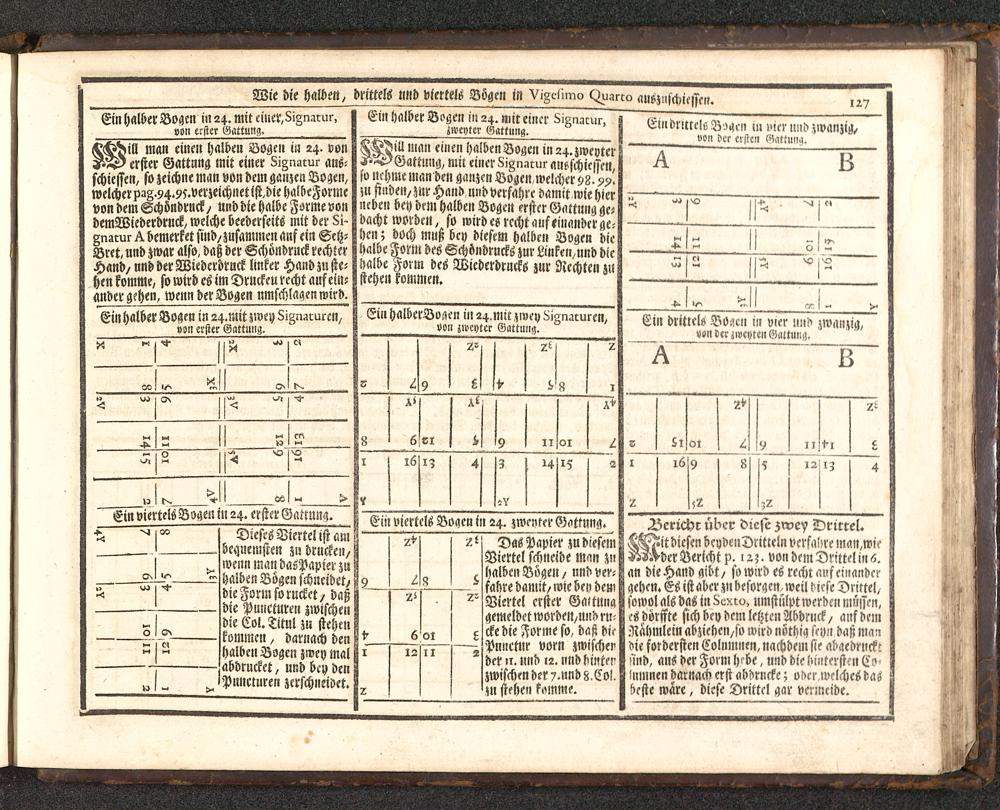 Wie die halben, drittels und viertels Bögen in Vigesimo Quarto auszuschiessen.
127
Ein halber Bogen in 24. mit einer, Signatur,
von erster Gattung.
Will man einen halben Bogen in 24. von
erster Gattung mit einer Signatur aus-
schiessen, so zeichne man von dem ganzen Bogen,
welcher pag. 94. 95. verzeichnet ist, die halbe Forme
von dem Schöndruck, und die halbe Forme von
dem Wiederdruck, welche beederseits mit der Si-
gnatur A bemerket sind, zusammen auf ein Setz-
Bret, und zwar also, daß der Schöndruck rechter
Hand, und der Wiederdruck linker Hand zu ste-
hen komme, so wird es im Drucken recht auf ein-
ander gehen, wenn der Bogen umschlagen wird.
Ein halber Bogen in 24. mit zwey Signaturen,
von erster Gattung.
X 1 4 X2 3 2
8 5 X3 6 7
V2 3 6 V3 5 4
14 11 12 13
15 10 V5 9 16
2 7 V4 8 1 A
Ein viertels Bogen in 24. erster Gattung.
Y4 7 8
6 5 Y3
Y2 3 4
10 9
11 12
2 1 Y
Dieses Viertel ist am
bequemsten zu drucken,
wenn man das Papier zu
halben Bögen schneidet,
die Form so rucket, daß
die Puncturen zwischen
die Col. Titul zu stehen
kommen, darnach den
halben Bogen zwey mal
abdrucket, und bey den
Puncturen zerschneidet.
Ein halber Bogen in 24. mit einer Signatur
zweyter Gattung.
Will man einen halben Bogen in 24. zweyter
Gattung, mit einer Signatur ausschiessen,
so nehme man den ganzen Bogen, welcher 98. 99.
zu finden, zur Hand, und verfahre damit, wie hier
neben bey dem halben Bogen erster Gattung ge-
dacht worden, so wird es recht auf einander ge-
hen; doch muß bey diesem halben Bogen die
halbe Form des Schöndrucks zur Linken, und die
halbe Form des Wiederdrucks zur Rechten zu
stehen kommen.
Ein halber Bogen in 24. mit zwey Signaturen,
von zweyter Gattung.
Z2 Z3 Z
2 7 6 3 4 5 8 1
Y5 Y3 Y4
8 9 12 5 6 11 10 7
1 16 13 4 3 14 15 2
Y Y2
Ein viertels Bogen in 24. zweyter Gattung.
Z4 Z3
6 7 8 5
Z5 Z2
4 9 10 3
1 12 11 2
Z
Das Papier zu diesem
Viertel schneide man zu
halben Bögen, und ver-
fahre damit, wie bey dem
Viertel erster Gattung
gemeldet worden, und ru-
cke die Forme so, daß die
Punctur vorn zwischen
der 11. und 12. und hinten
zwischen der 7. und 8. Col.
zu stehen komme.
Ein drittels Bogen in vier und zwanzig,
von der ersten Gattung.
A B
Y2 3 6 Y4 7 2
14 11 10 15
13 12 Y5 9 16
4 5 Y3 8 1 Y
Ein drittels Bogen in vier und zwanzig,
von der zweyten Gattung.
A B
Z4 Z2
2 15 10 7 6 11 14 3
1 16 9 8 5 12 13 4
Z Z5 Z3
Bericht über diese zwey Drittel.
Mit diesen beyden Dritteln verfahre man, wie
der Bericht p. 123. von dem Drittel in 6.
an die Hand gibt, so wird es recht auf einander
gehen. Es ist aber zu besorgen, weil diese Drittel,
sowol als das in Sexto, umstülpt werden müssen,
es dörffte sich bey dem letzten Abdruck, auf dem
Rähmlein abziehen, so wird nöthig seyn, daß man
die fordersten Columnen, nachdem sie abgedruckt
sind, aus der Form hebe, und die hintersten Co-
lumnen darnach erst abdrucke; oder, welches das
beste wäre, diese Drittel gar vermeide.